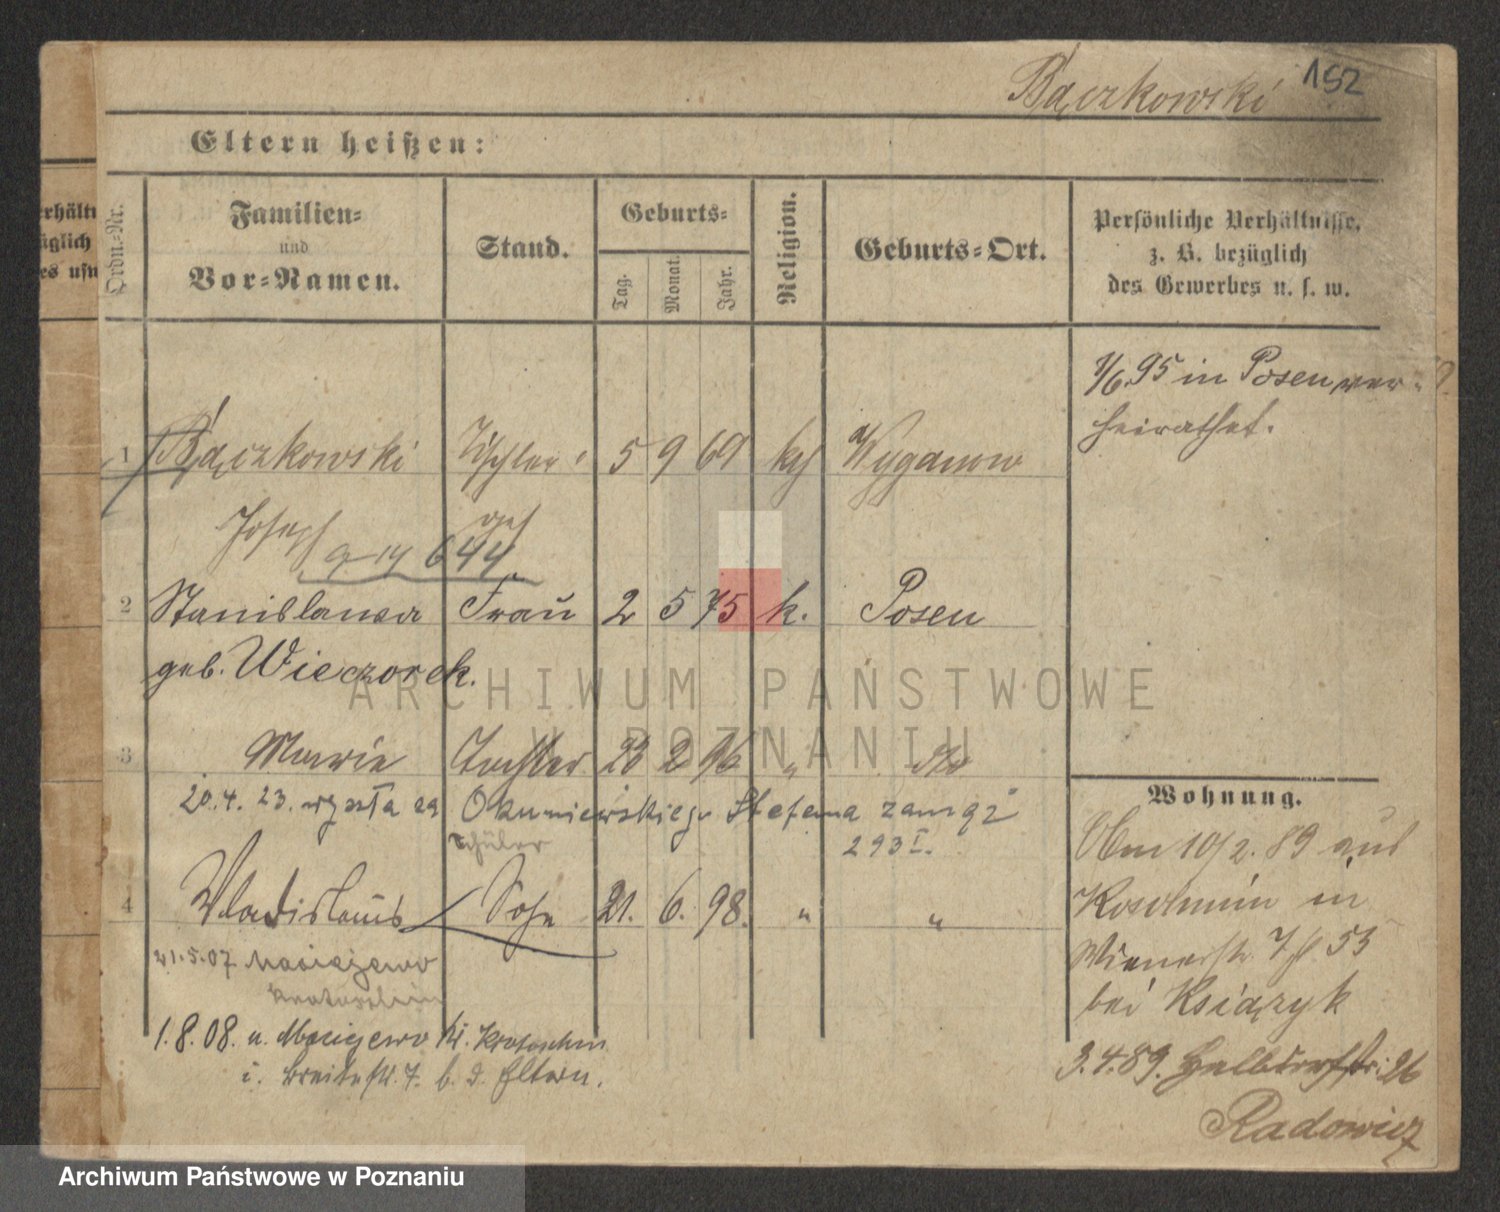 Bączkowski 152
Eltern heißen:
erhältn
üglich
es usw
Ordn.-Nr.
Familien-
und
Vor-Namen.
Stand.
Geburts-
Tag.
Monat.
Jahr.
Religion.
Geburts-Ort.
Persönliche Verhältnisse,
z. B. bezüglich
des Gewerbes u. s. w.
1/6.95 in Posen ver-
heirathet.
1 Bączkowski Tischler 5 9 69 kth Wyganow
Joseph
644
2 Stanislawa Frau 2 5 75 k. Posen
geb. Wieczorek.
3 Marie Tochter 23 2 96 " dto
20.4.23. wyszła za Okuniewskiego Stefana zamąż
Schüler 293 I.
4 Wladislaus Sohn 21. 6. 98. " "
21.5.07 Maciejewo
Krotoschin
1.8.08. n. Maciejewo Kr. Krotoschin
i. Breitestr. 7. b. d. Eltern.
Wohnung.
10/2.89 aus
Koschmin in
Wienerstr. 53
bei Książyk
3.4.89. Halbdorfstr. 26
Radowicz
ARCHIWUM PAŃSTWOWE
W POZNANIU
Archiwum Państwowe w Poznaniu